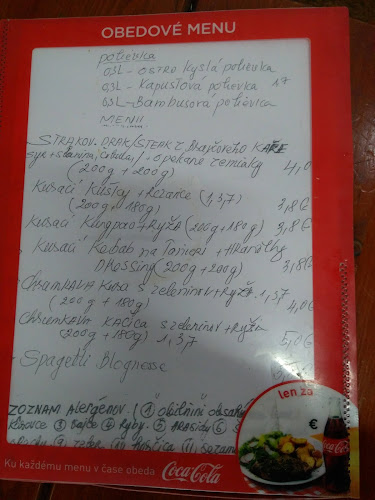 OBEDOVÉ MENU
polievka
0,3L - OSTRO Kyslá polievka
0,3L - Kapustová polievka 1,7
0,3L - Bambusová polievica
MENU
STRAKOV. DRAK/STEAK Z
syr + slanina, cibuľa, + opekané zemiaky
(200g + 200g) 4,0€
Kuracie Kúsky + Rezance (1,3,7)
(200g + 180g) 3,8€
Kurací Kungpao + Ryža (200g + 180g) 3,8€
Kuraci Kebab na Tanieri + Hranolky
DRESSING (200g + 200g) 3,8€
CHRUMKAVÁ Kura s zeleninov + Ryža 1,3,7
(200g + 180g) 4,0€
Chrumkavá KAČICA s zeleninov + Ryža
(200g + 180g) 1,3,7 5,0€
- Spagetti Blognesse
ZOZNAM Alergénov (① obilniny obsah
③ Vajce ④ Ryby ⑤ ARASIDY ⑥
⑩ HORČICA ⑪ Sezam
len za
€
Ku každému menu v čase obeda Coca-Cola